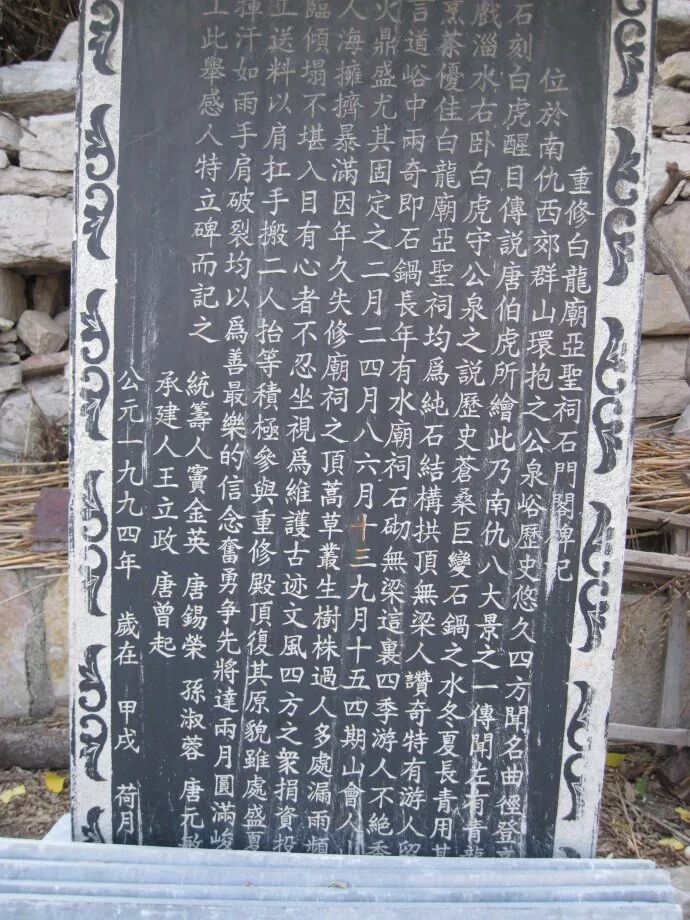 重修白龍廟亞聖祠石門閣碑記
位於南仇西郊群山環抱之公泉峪歷史悠久四方聞名曲徑登
石刻白虎醒目傳説唐伯虎所繪此乃南仇八大景之一傳聞左有青龍
戲淄水右卧白虎守公泉之説歷史蒼桑巨變石鍋之水冬夏長青用其
烹茶優佳白龍廟亞聖祠均爲純石結構拱頂無梁人讚奇特有游人留
言道峪中兩奇即石鍋長年有水廟祠石砌無梁這裏四季游人不絶香
火鼎盛尤其固定之二月二四月八六月十三九月十五四期山會人
人海擁擠暴滿因年久失修廟祠之頂蒿草叢生樹株過人多處漏雨頻
臨傾塌不堪入目有心者不忍坐視爲維護古迹文風四方之衆捐資投
送料以肩扛手搬二人抬等積極參與重修殿頂復其原貌雖處盛夏
揮汗如雨手肩破裂均以爲善最樂的信念奮勇爭先將達兩月圓滿峻
工此舉感人特立碑而記之
統籌人竇金英 唐錫榮 孫淑蓉 唐元敏
承建人王立政 唐曾起
公元一九九四年 歲在 甲戌 荷月